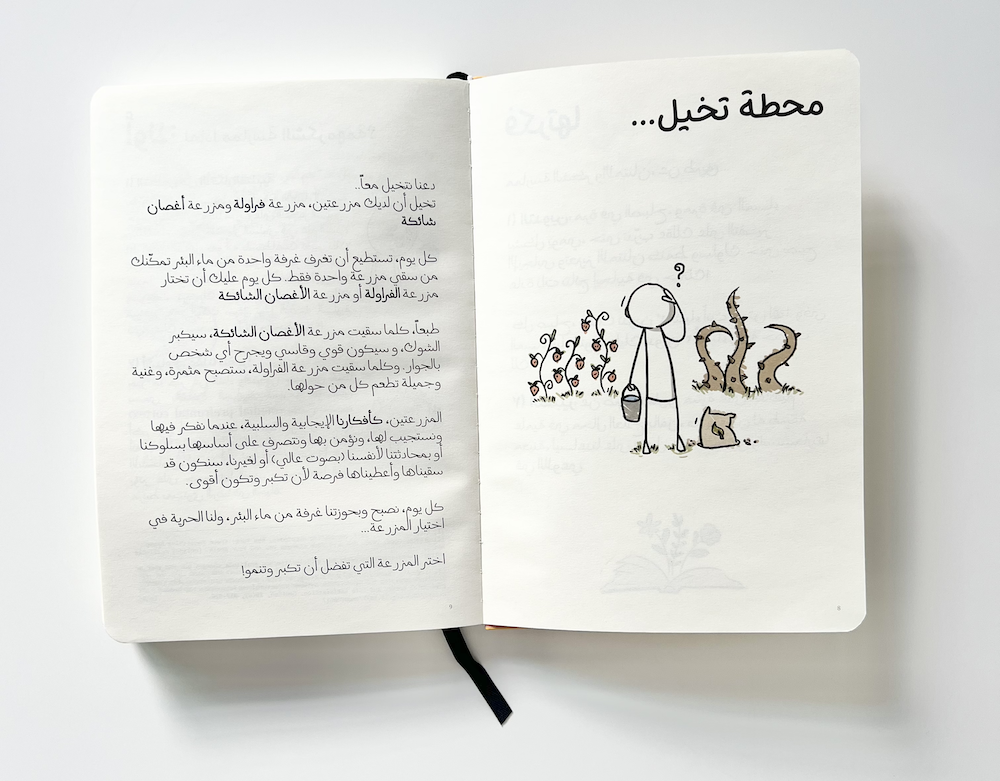 محطة تخيل...
?
دعنا نتخيل معاً..
تخيل أن لديك مزرعتين، مزرعة فراولة ومزرعة أغصان
شائكة
كل يوم، تستطيع أن تغرف غرفة واحدة من ماء البئر تمكّنك
من سقي مزرعة واحدة فقط. كل يوم عليك أن تختار
مزرعة الفراولة أو مزرعة الأغصان الشائكة
طبعاً، كلما سقيت مزرعة الأغصان الشائكة، سيكبر
الشوك، وسيكون قوي وقاسي ويجرح أي شخص
بالجوار. وكلما سقيت مزرعة الفراولة، ستصبح مثمرة، وغنية
وجميلة تطعم كل من حولها.
المزرعتين، كأفكارنا الإيجابية والسلبية، عندما نفكر فيها
ونستجيب لها، ونؤمن بها ونتصرف على أساسها بسلوكنا
أو بمحادثتنا لأنفسنا (بصوت عالي) أو لغيرنا، سنكون قد
سقيناها وأعطيناها فرصة لأن تكبر وتكون أقوى.
كل يوم، نصبح وبحوزتنا غرفة من ماء البئر، ولنا الحرية في
اختيار المزرعة...
اختر المزرعة التي تفضل أن تكبر وتنمو!